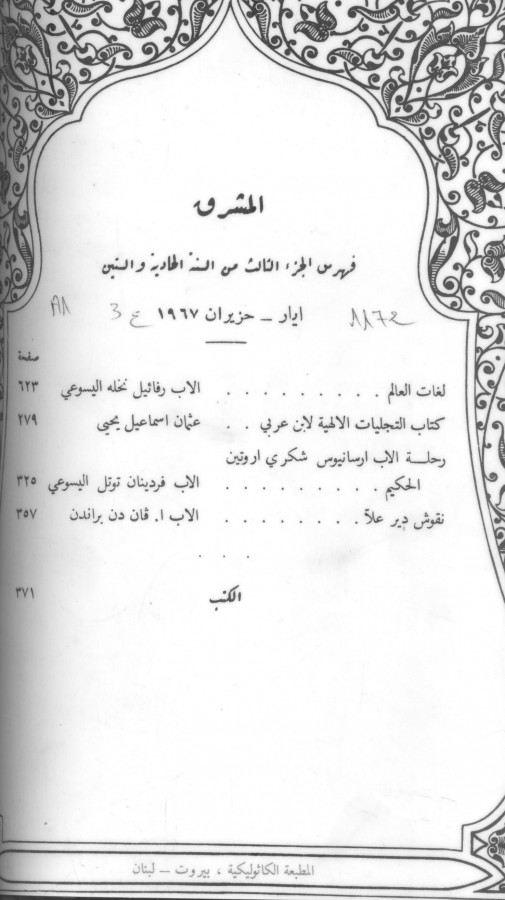 المشرق
فهرس الجزء الثالث من السنة الحادية والستين
ايار – حزيران ١٩٦٧
1172
ع 3
صفحة
لغات العالم . . . . . . . . . الاب رفائيل نخله اليسوعي ٦٢٣
كتاب التجليات الالهية لابن عربي . . عثمان اسماعيل يحيى ٢٧٩
رحلة الاب ارسانيوس شكري اروتين
الحكيم . . . . . . . . . الاب فردينان توتل اليسوعي ٣٢٥
نقوش دير علاّ . . . . . . . . الاب ا. ڤان دن براندن ٣٥٧
. . .
الكتب ٣٧١
المطبعة الكاثوليكية ، بيروت – لبنان